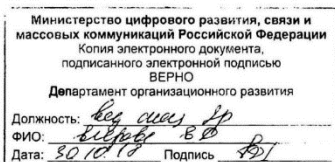 Министерство цифрового развития, связи и
массовых коммуникаций Российской Федерации
Копия электронного документа,
подписанного электронной подписью
ВЕРНО
Департамент организационного развития
Должность:
ФИО:
Дата: 30 10 Подпись